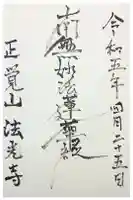 令和五年四月二十五日
南無妙法蓮華経
正覚山 法光寺